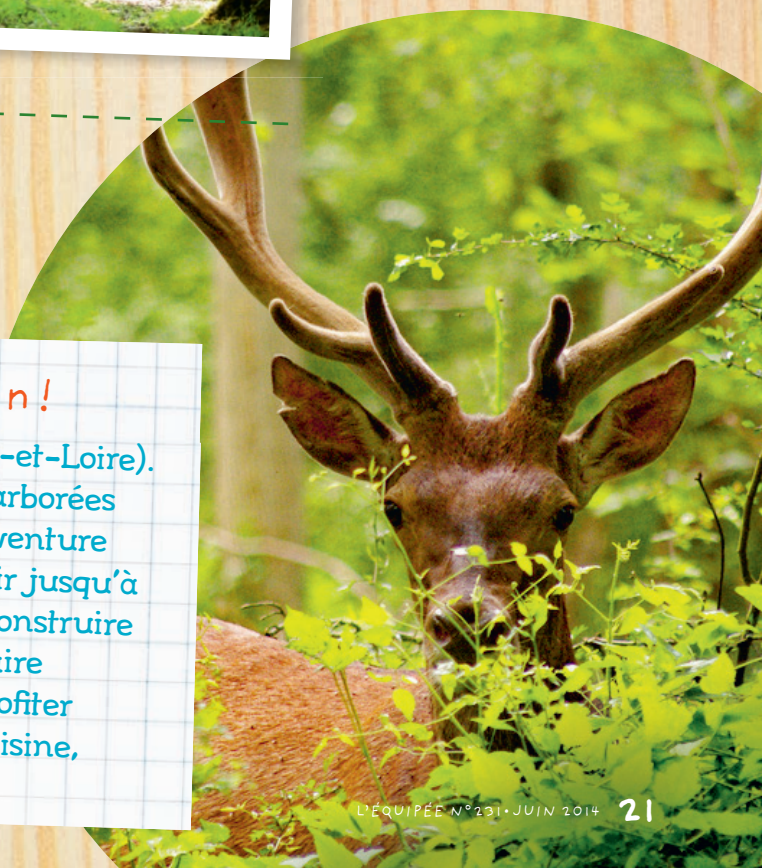 n !
-et-Loire).
arborées
venture
ir jusqu'à
onstruire
ire
ofiter
isine,
L'ÉQUIPÉE N°231 • JUIN 2014 21